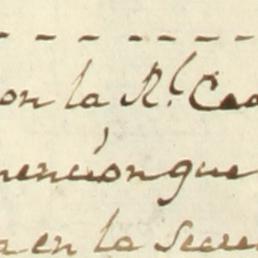 on la Rl. Ce
mencion que
en la Secre